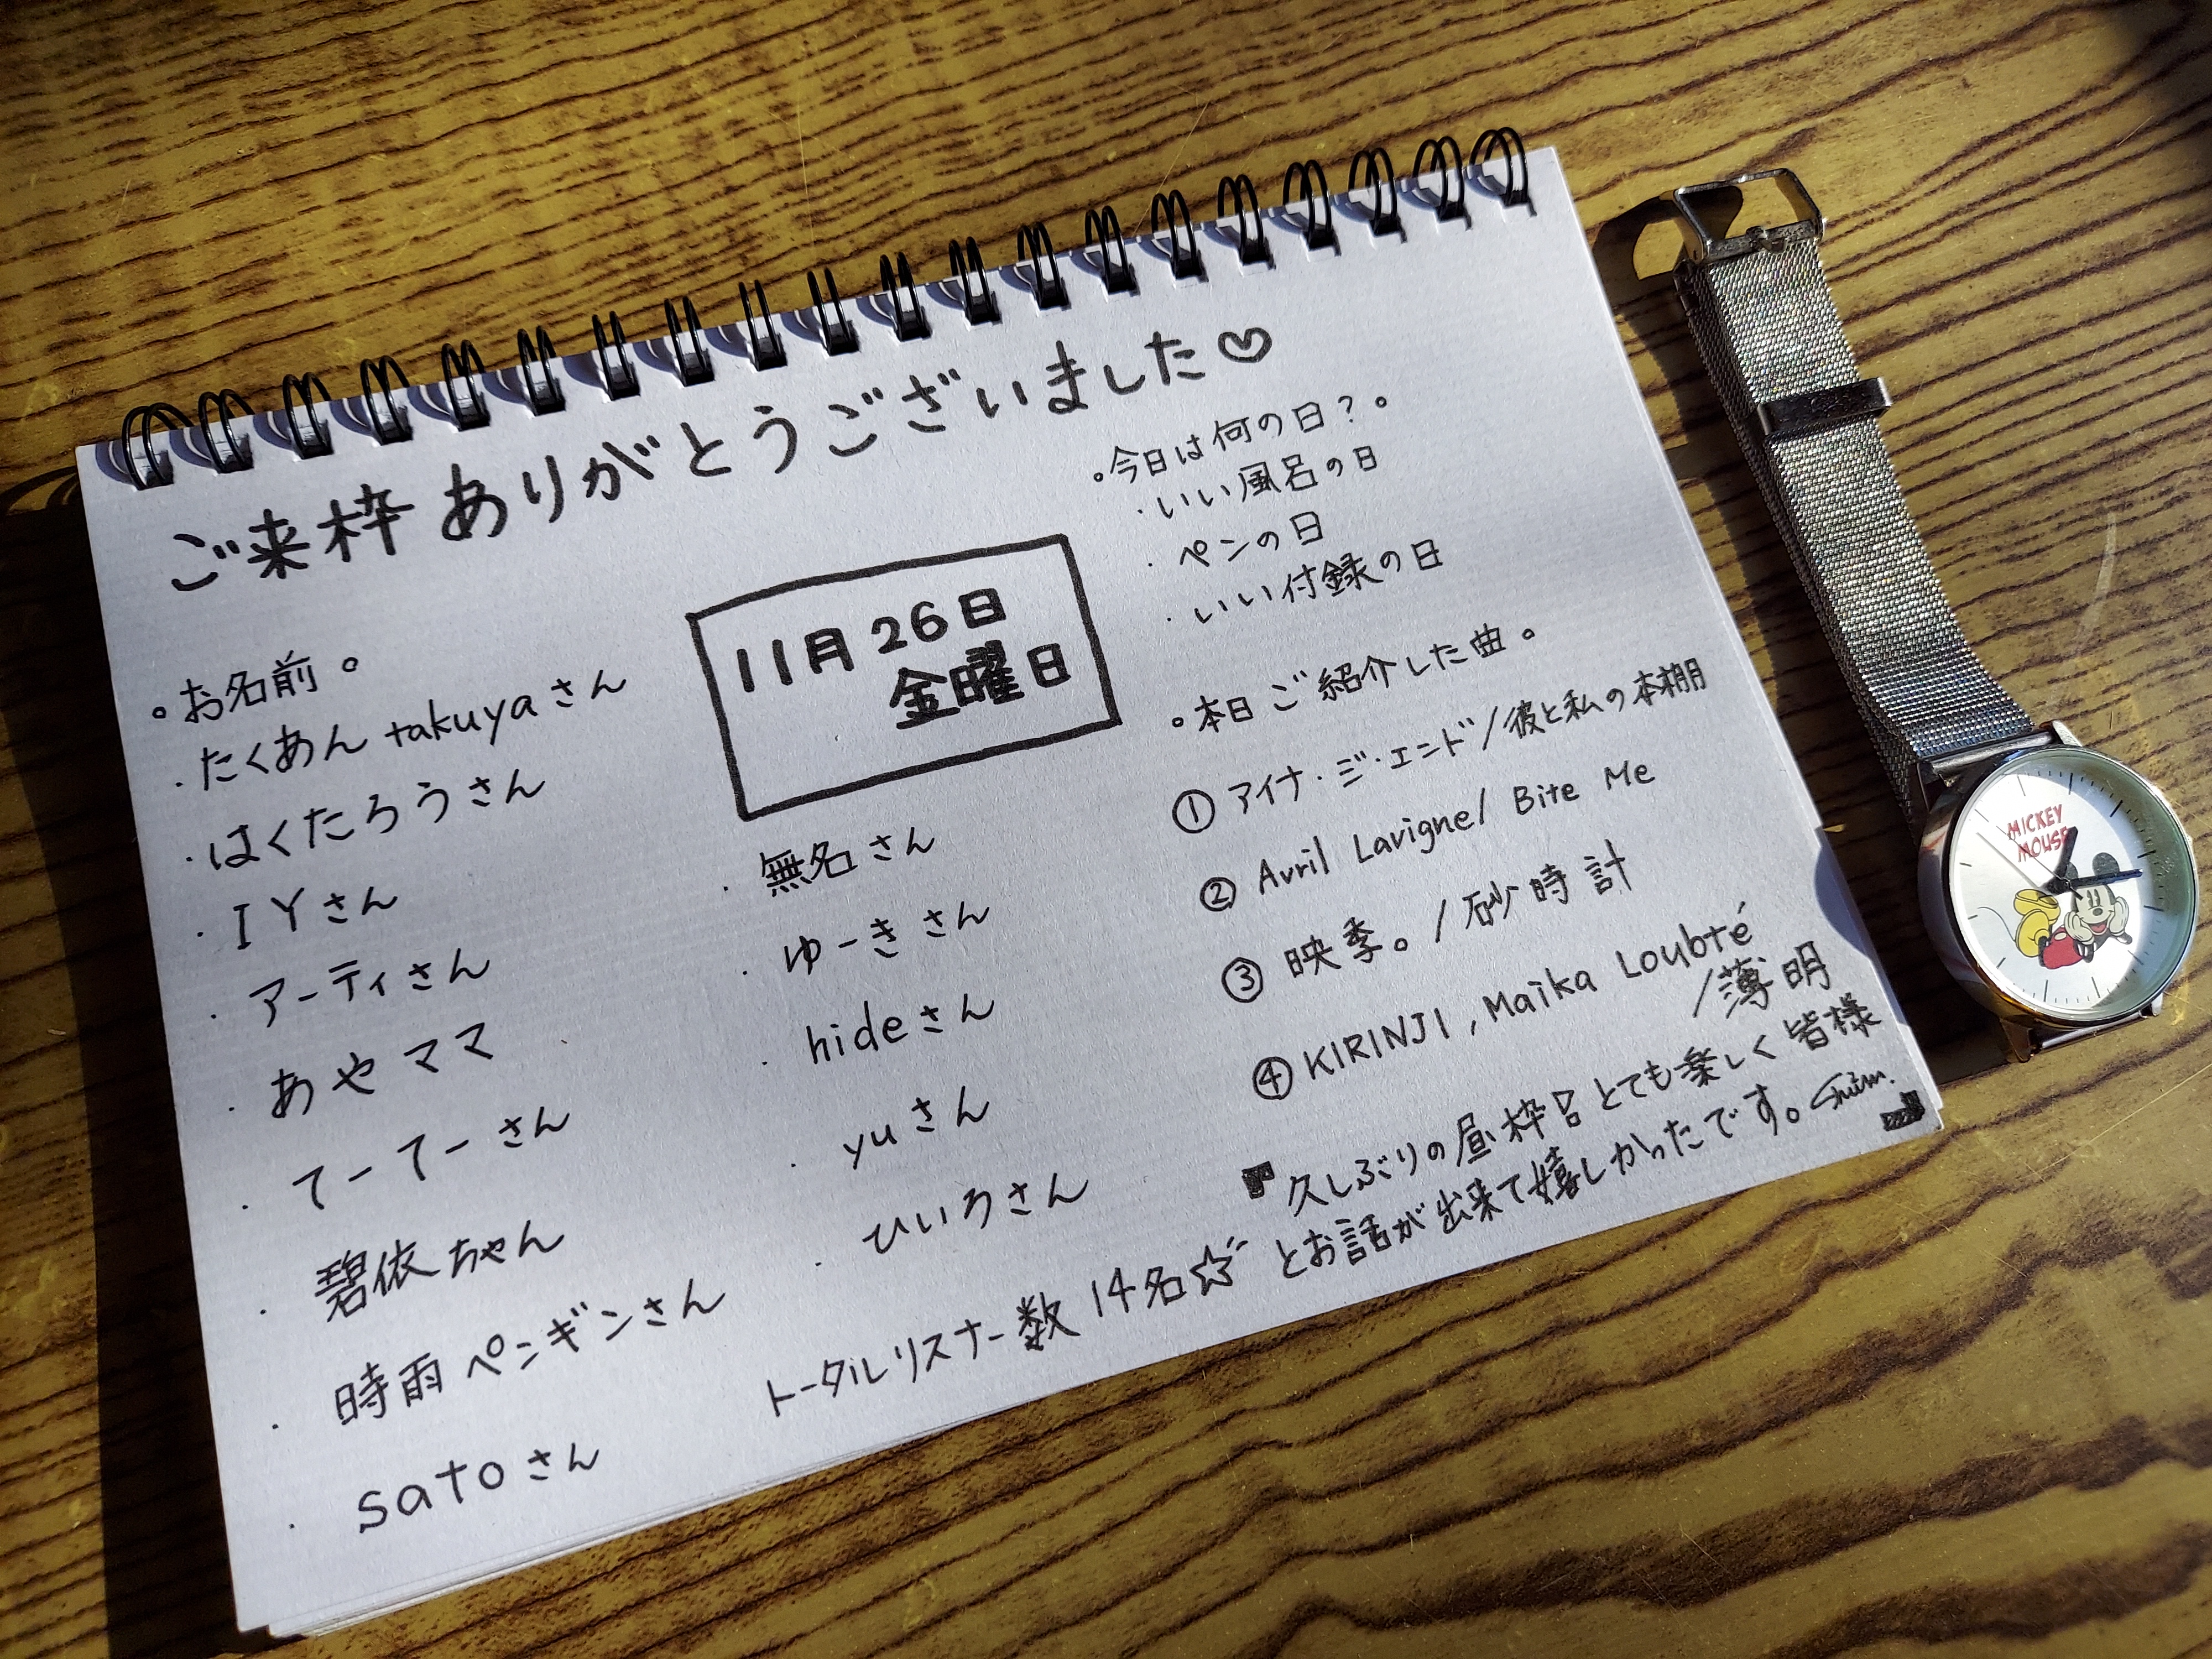 ご来枠ありがとうございました♡
11月26日
金曜日
。お名前。
・たくあんtakuyaさん
・はくたろうさん
・IYさん
・アーティさん
・あやママ
・てーてーさん
・碧依ちゃん
・時雨ペンギンさん
・satoさん
・無名さん
・ゆーきさん
・hideさん
・yuさん
・ひいろさん
トータルリスナー数14名☆
。今日は何の日？。
・いい風呂の日
・ペンの日
・いい付録の日
。本日ご紹介した曲。
① アイナ・ジ・エンド/彼と私の本棚
② Avril Lavigne/ Bite Me
③ 映季。/砂時計
④ KIRINJI, Maika Loubté
/薄明
『久しぶりの昼枠とても楽しく皆様
とお話が出来て嬉しかったです。』
MICKEY
MOUSE